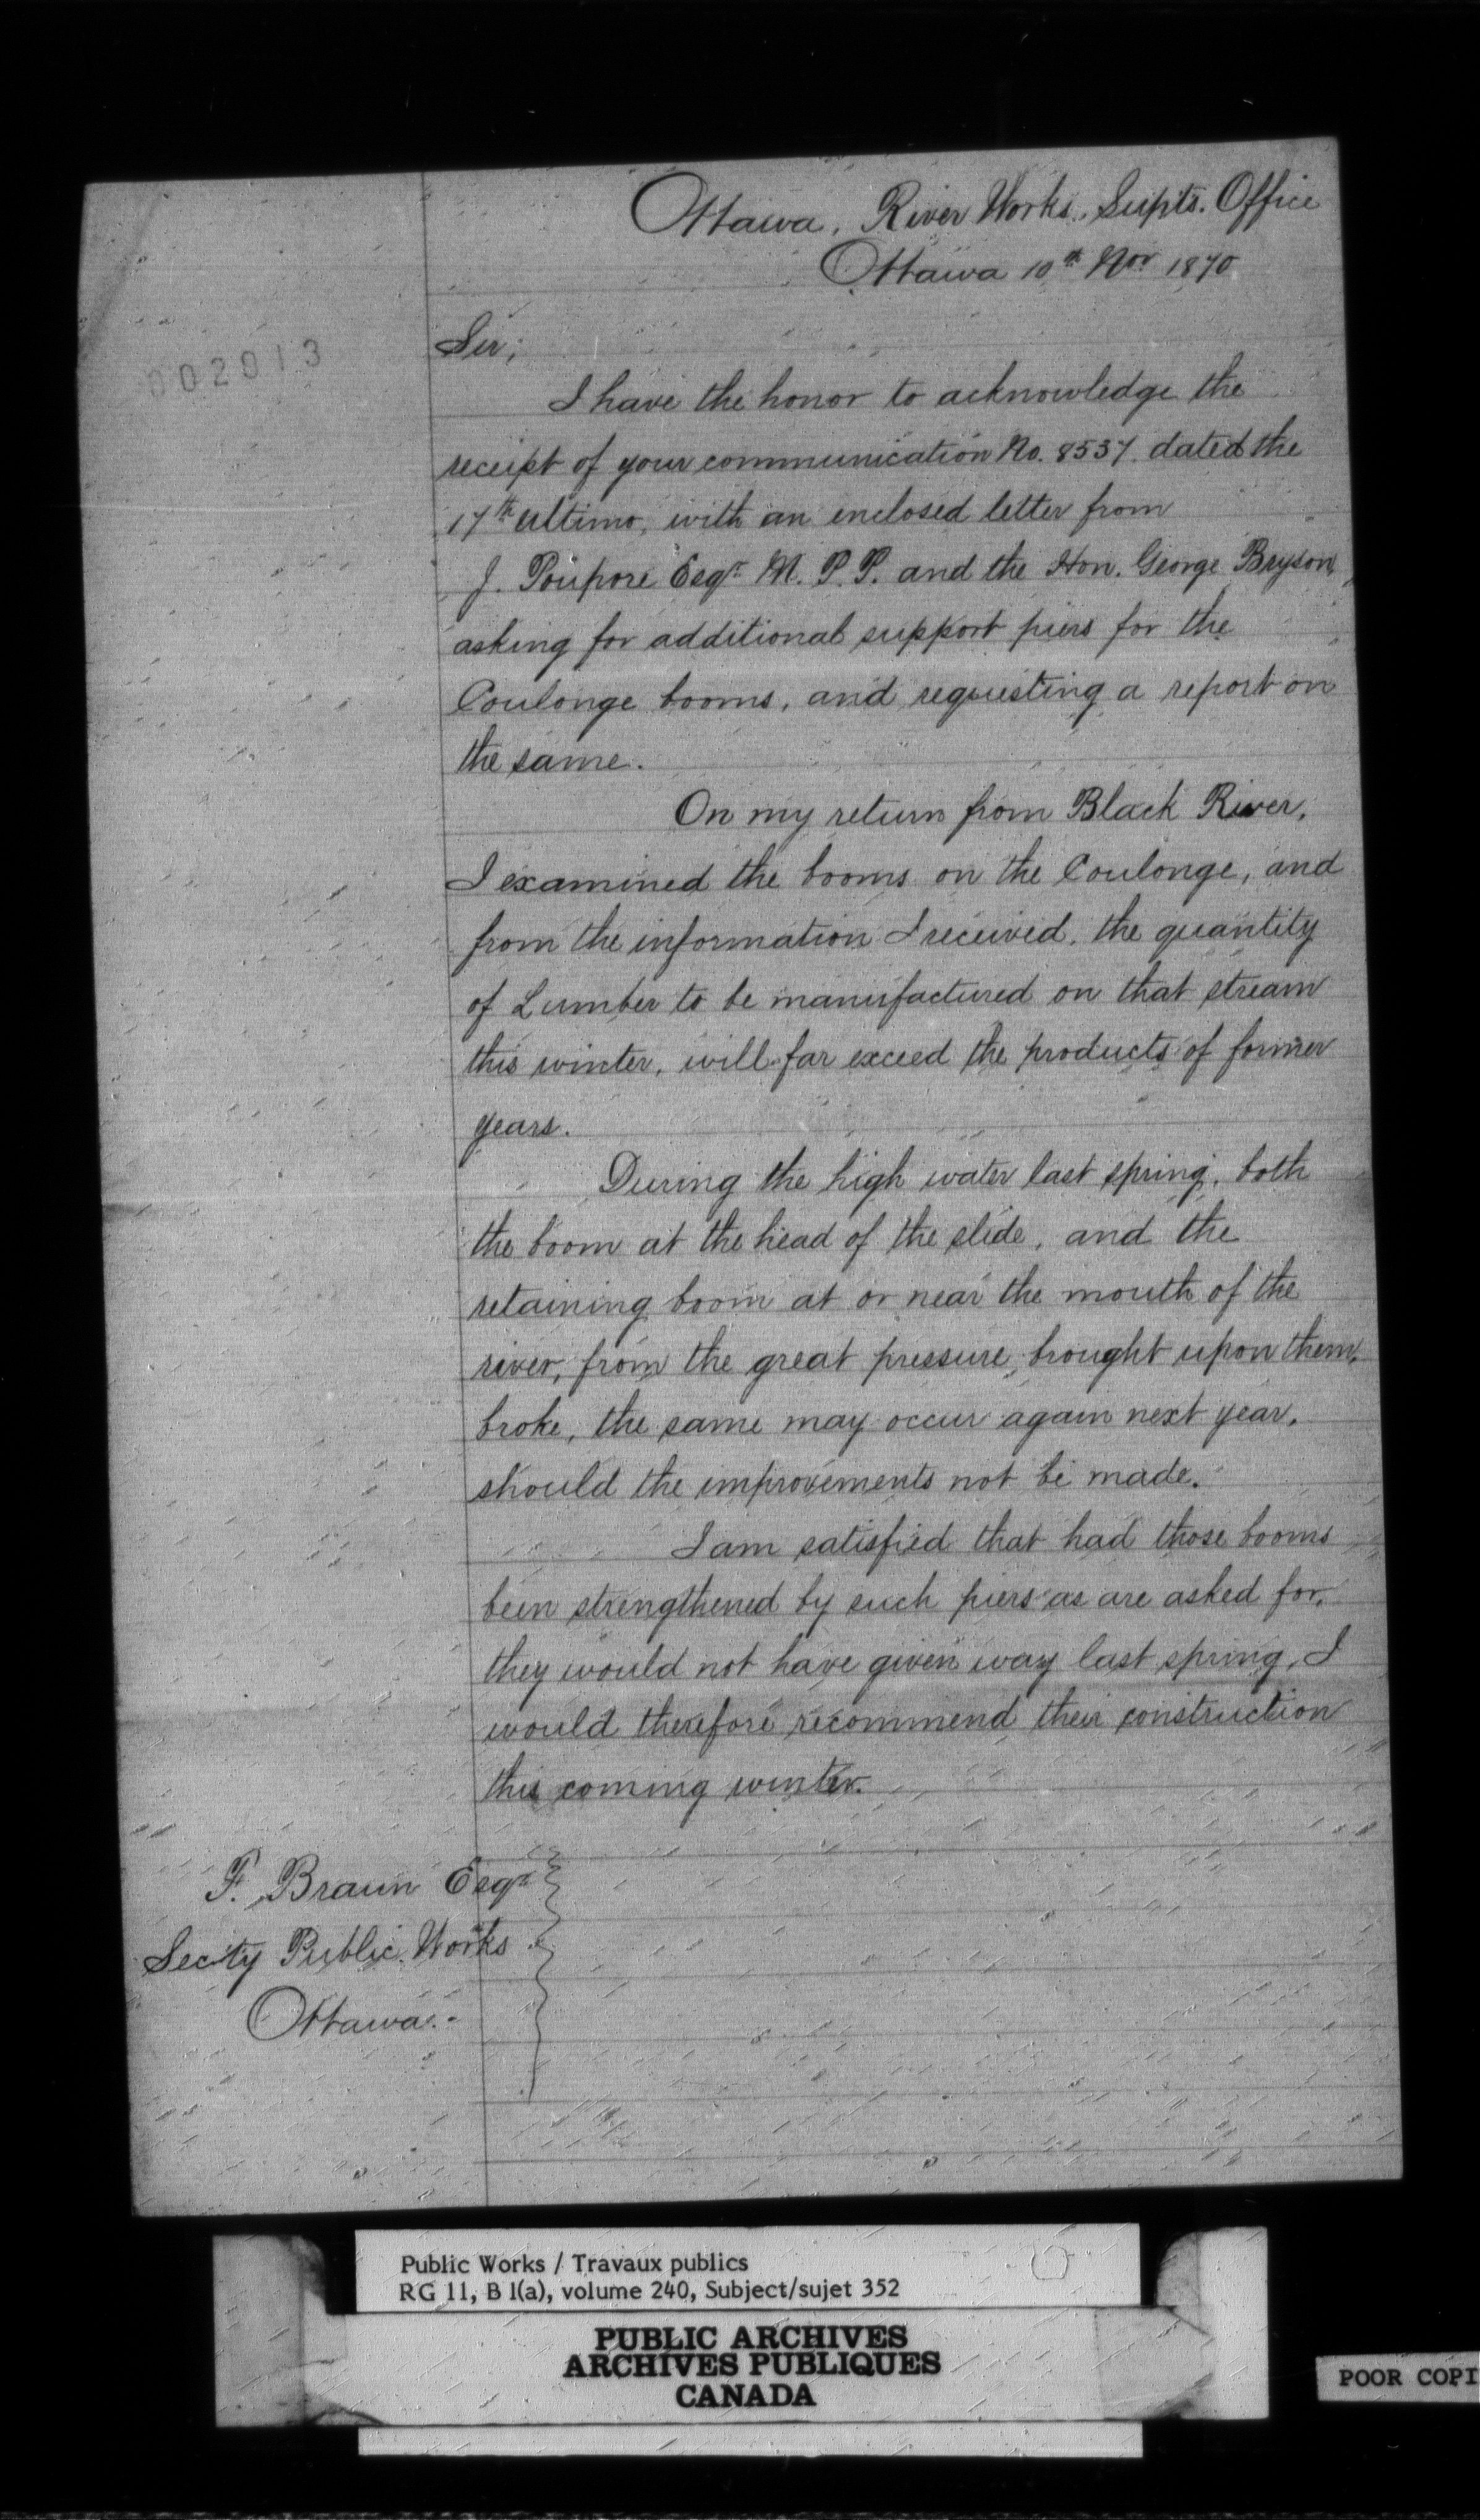 Ottawa, River Works, Supts. Office
Ottawa 10th Novr 1870
002013
Sir;
I have the honor to acknowledge the
receipt of your communication No. 8537. dated the
17th Ultimo, with an enclosed letter from
J. Poupore Esqr. M. P. P. and the Hon. George Bryson,
asking for additional support piers for the
Coulonge booms, and requesting a report on
the same.
On my return from Black River,
I examined the booms on the Coulonge, and
from the information I received, the quantity
of Lumber to be manufactured on that stream
this winter, will far exceed the products of former
years.
During the high water last spring, both
the boom at the head of the slide, and the
retaining boom at or near the mouth of the
river, from the great pressure brought upon them,
broke, the same may occur again next year,
should the improvements not be made.
I am satisfied that had those booms
been strengthened by such piers as are asked for,
they would not have given way last spring, I
would therefore recommend their construction
this coming winter.
F. Braun Esqr.
Secty Public Works
Ottawa.-
Public Works / Travaux publics
RG 11, B 1(a), volume 240, Subject/sujet 352
PUBLIC ARCHIVES
ARCHIVES PUBLIQUES
CANADA
POOR COPI